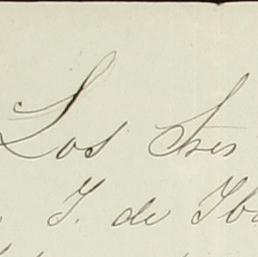 Los Tres
J. de Ib